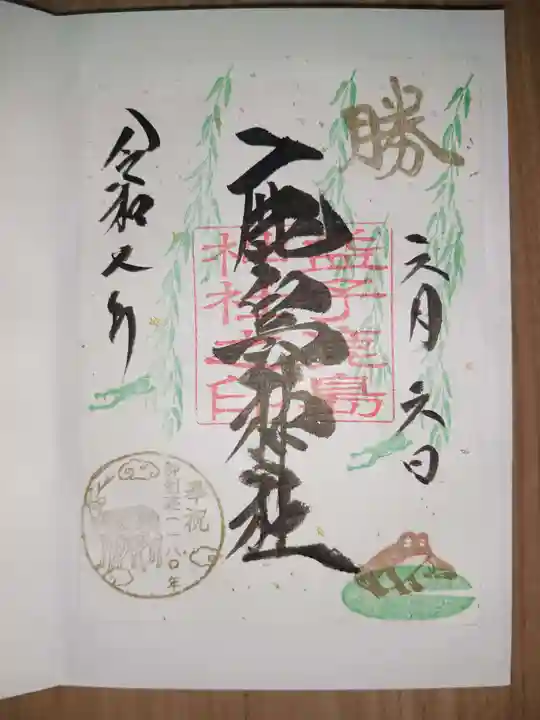 勝
六月六日
鹿島神社
益子鹿島
神社之印
令和七年
奉祝
御創建一一八〇年